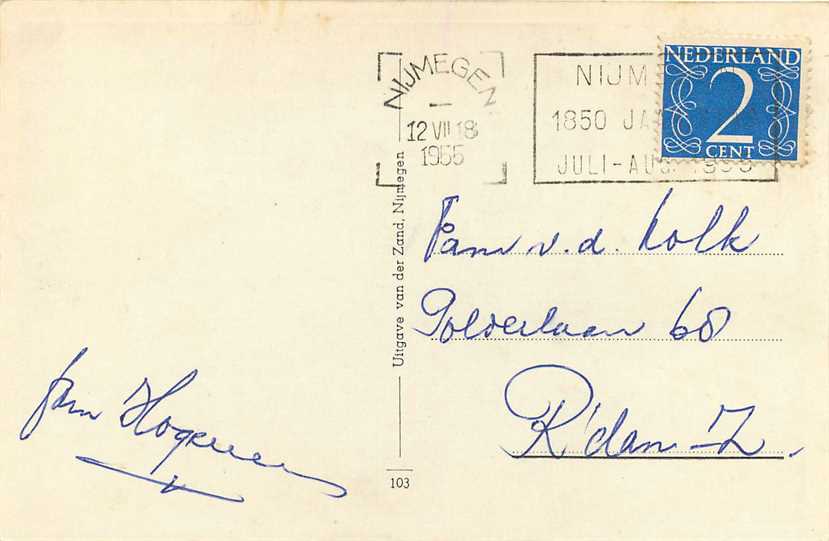 NIJMEGEN
12 VII 18
1955
NIJM
1850 JA
JULI-AUG. 1955
NEDERLAND
2
CENT
Uitgave van der Zand, Nijmegen
103
Fam v.d. Kolk
Polderlaan 68
R'dam-Z.
fam